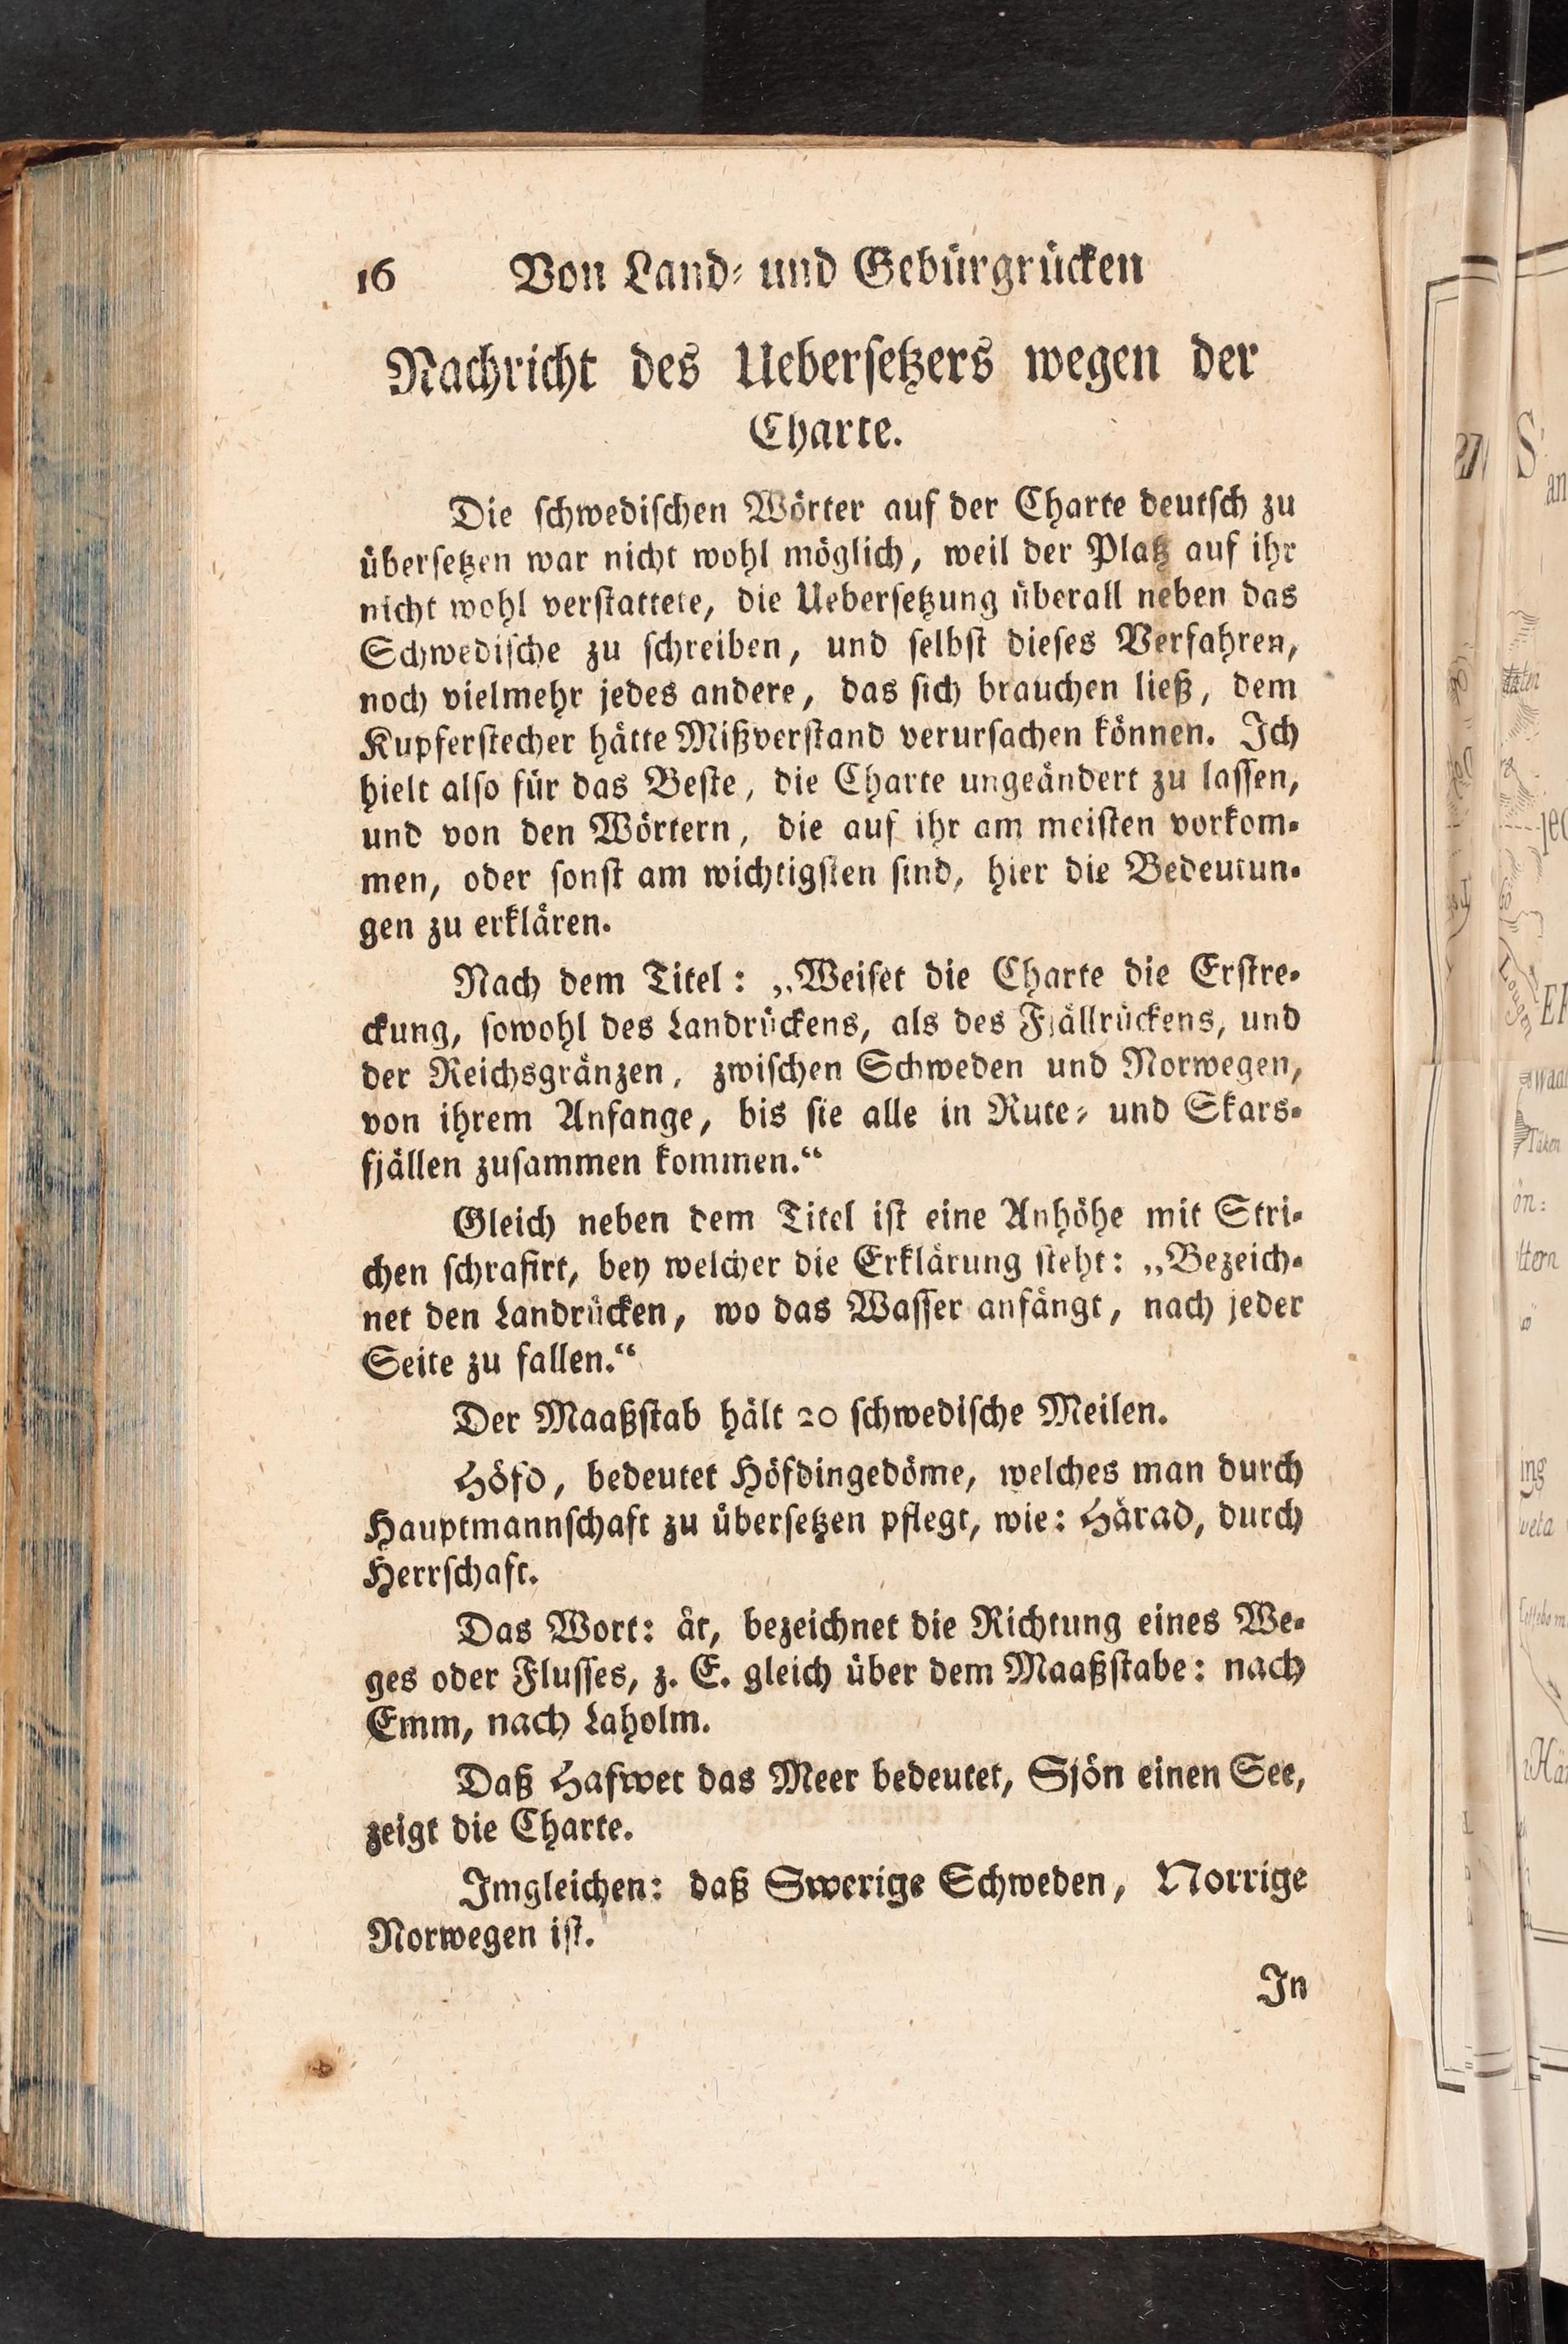 16 Von Land- und Gebürgrücken
Nachricht des Uebersetzers wegen der
Charte.
Die schwedischen Wörter auf der Charte deutsch zu
übersetzen war nicht wohl möglich, weil der Platz auf ihr
nicht wohl verstattete, die Uebersetzung überall neben das
Schwedische zu schreiben, und selbst dieses Verfahren,
noch vielmehr jedes andere, das sich brauchen ließ, dem
Kupferstecher hätte Mißverstand verursachen können. Ich
hielt also für das Beste, die Charte ungeändert zu lassen,
und von den Wörtern, die auf ihr am meisten vorkom-
men, oder sonst am wichtigsten sind, hier die Bedeutun-
gen zu erklären.
Nach dem Titel: „Weiset die Charte die Erstre-
ckung, sowohl des Landrückens, als des Fjällrückens, und
der Reichsgränzen, zwischen Schweden und Norwegen,
von ihrem Anfange, bis sie alle in Rute- und Skars-
fjällen zusammen kommen.“
Gleich neben dem Titel ist eine Anhöhe mit Stri-
chen schrafirt, bey welcher die Erklärung steht: „Bezeich-
net den Landrücken, wo das Wasser anfängt, nach jeder
Seite zu fallen.“
Der Maaßstab hält 20 schwedische Meilen.
Höfd, bedeutet Höfdingedöme, welches man durch
Hauptmannschaft zu übersetzen pflegt, wie: Härad, durch
Herrschaft.
Das Wort: åt, bezeichnet die Richtung eines We-
ges oder Flusses, z. E. gleich über dem Maaßstabe: nach
Emm, nach Laholm.
Daß Hafwet das Meer bedeutet, Sjön einen See,
zeigt die Charte.
Imgleichen: daß Swerige Schweden, Norrige
Norwegen ist.
In